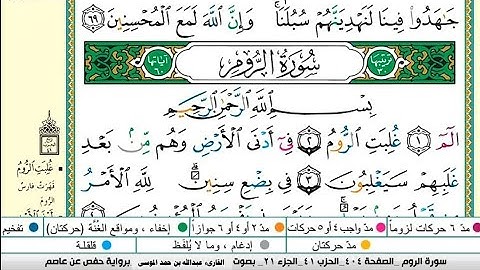 جَٰهَدُوا۟ فِينَا لَنَهْدِيَنَّهُمْ سُبُلَنَا ۚ وَإِنَّ ٱللَّهَ لَمَعَ ٱلْمُحْسِنِينَ ٦٩
ترتيبها ٣٠ سُورَةُ الرُّومِ آياتها ٦٠
بِسْمِ ٱللَّهِ ٱلرَّحْمَٰنِ ٱلرَّحِيمِ
الٓمٓ ١ غُلِبَتِ ٱلرُّومُ ٢ فِىٓ أَدْنَى ٱلْأَرْضِ وَهُم مِّنۢ بَعْدِ
غَلَبِهِمْ سَيَغْلِبُونَ ٣ فِى بِضْعِ سِنِينَ ۗ لِلَّهِ ٱلْأَمْرُ
غُلِبَتِ ٱلرُّومُ
قهرت فارس
الروم
مدّ ٦ حركات لزوماً مدّ ٢ أو ٤ أو ٦ جوازاً إخفاء، ومواقع الغُنَّة (حركتان) تفخيم
مدّ واجب ٤ أو ٥ حركات مدّ حركتان إدغام، وما لا يُلفَظ قلقلة
سورة الروم _الصفحة ٤٠٤ _الحزب ٤١ _الجزء ٢١ _ بصوت القارئ، عبدالله بن حمد الموسى برواية حفص عن عاصم